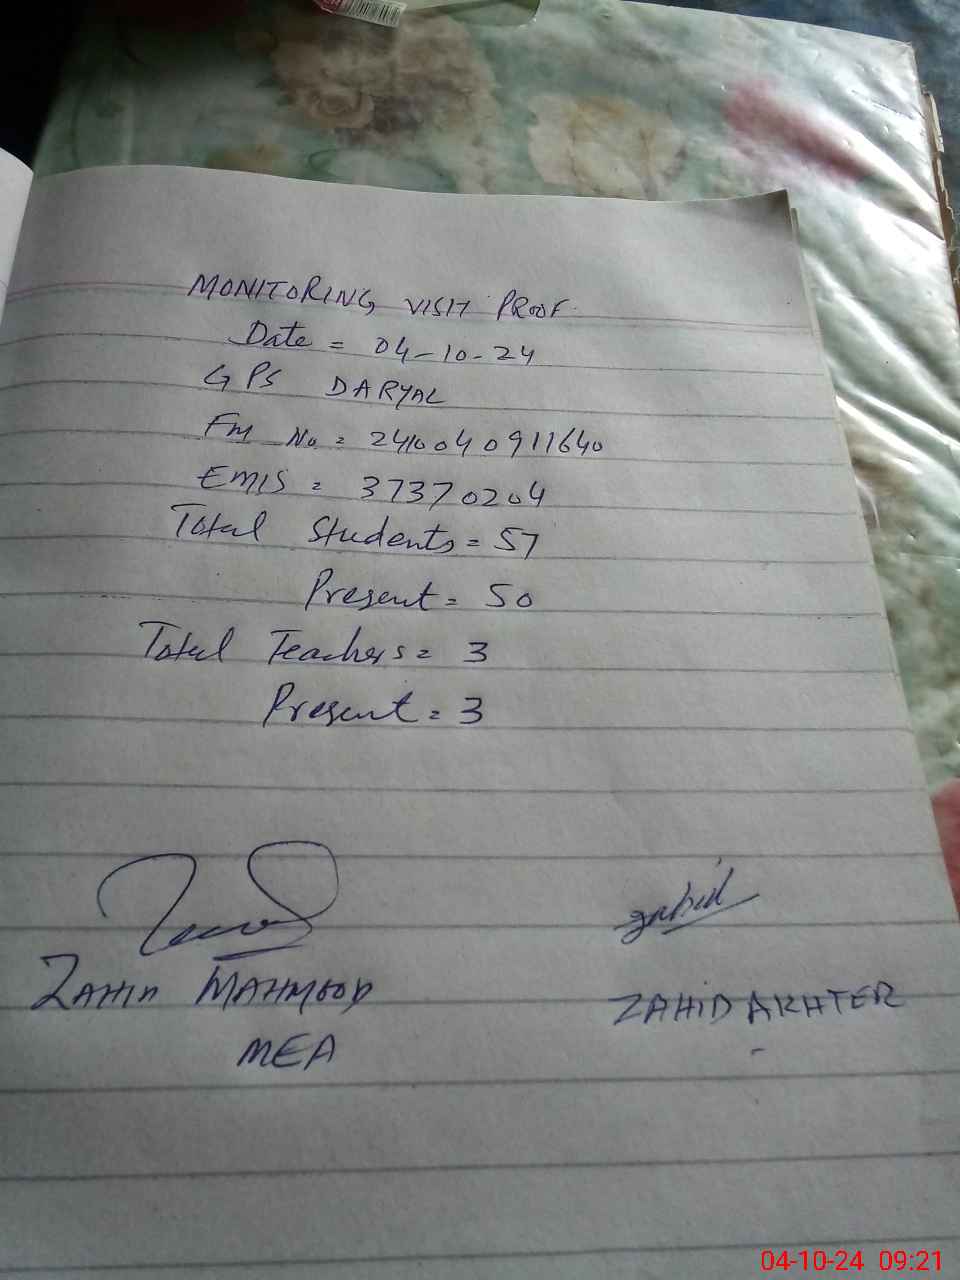 MONITORING VISIT PROOF.
Date = 04-10-24
GPS DARYAL
Fm No = 2410040911640
EMIS = 37370204
Total Students = 57
Present = 50
Total Teachers = 3
Present = 3
zahid
ZAHID MAHMOOD
ZAHID AKHTER
MEA
04-10-24 09:21